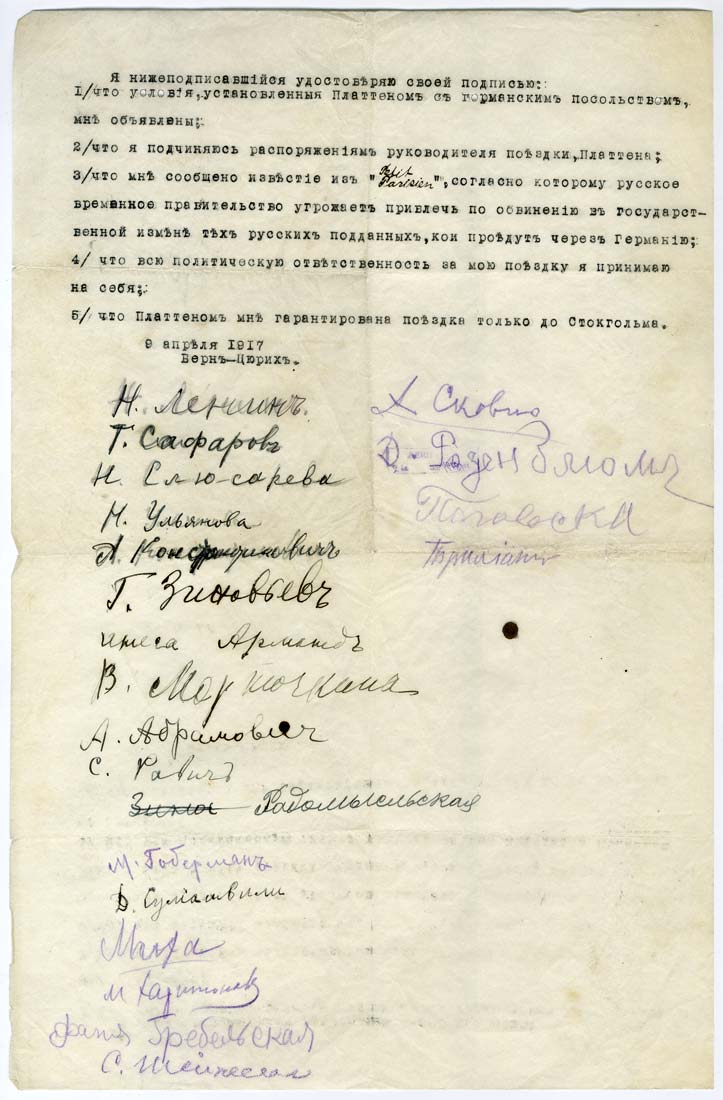 Я нижеподписавшійся удостовѣряю своей подписью:
1/что условія,установленныя Платтеномъ съ германскимъ посольствомъ,
мнѣ объявлены;
2/что я подчиняюсь распоряженіямъ руководителя поѣздки,Платтена;
3/что мнѣ сообщено извѣстіе изъ "Petit Parisien",согласно которому русское
временное правительство угрожаетъ привлечь по обвиненію въ государст-
венной измѣнѣ тѣхъ русскихъ подданныхъ,кои проѣдутъ черезъ Германію;
4/ что всю политическую отвѣтственность за мою поѣздку я принимаю
на себя;
5/ что Платтеномъ мнѣ гарантирована поѣздка только до Стокгольма.
9 апрѣля 1917
Бернъ-Цюрихъ.
Н. Ленинъ
Г. Сафаровъ
Н. Слюсарева
Н. Ульянова
А. Константиновичъ
Г. Зиновьевъ
инеса Армандъ
В.
А. Абрамовичъ
С. Равичъ
Радомысльская
М. Гоберманъ
Д. Сулиашвили
Миха
М Харитоновъ
Фаня Гребельская
С. Шейнесонъ
Х Сковно
Д. Розенблюмъ